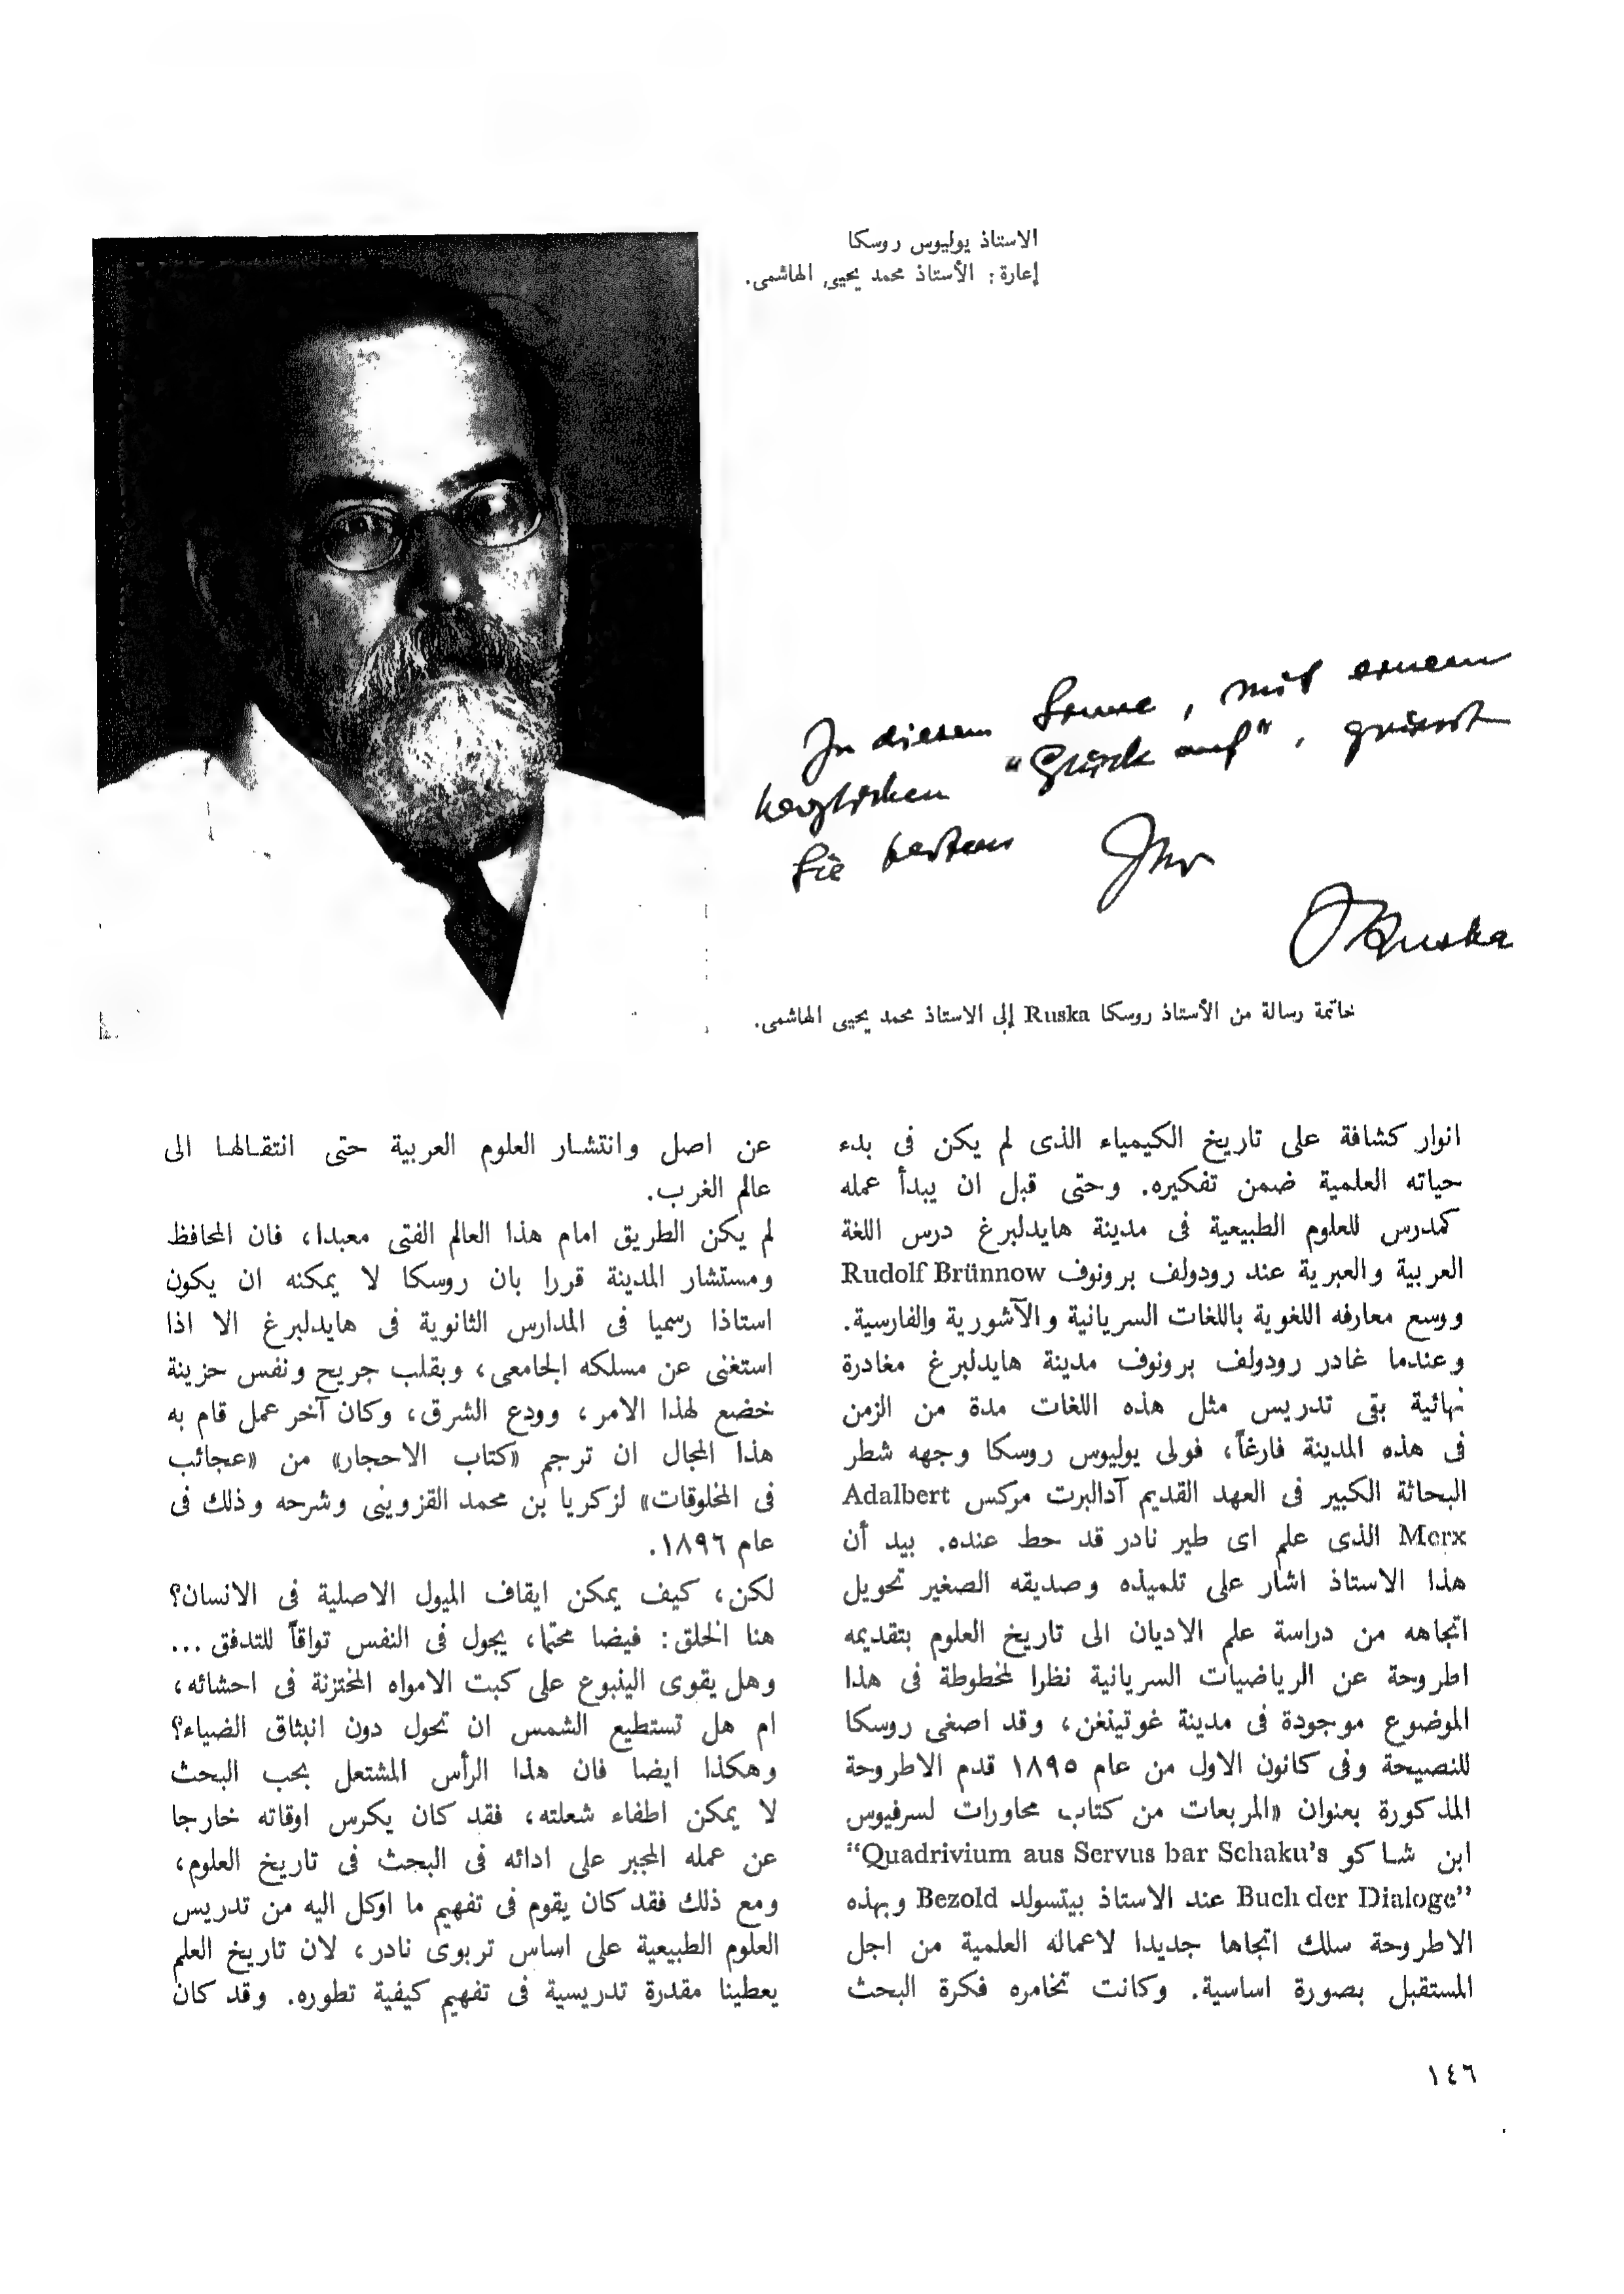 الاستاذ يوليوس روسكا
إعارة: الأستاذ محمد يحيى الهاشمى.
In diesem Sinne, mit einem
herzlichen "Glück auf", grüsst
Sie bestens Ihr
J Ruska
خاتمة رسالة من الأستاذ روسكا Ruska إلى الاستاذ محمد يحيى الهاشمى.
انوار كشافة على تاريخ الكيمياء الذى لم يكن فى بدء
حياته العلمية ضمن تفكيره. وحتى قبل ان يبدأ عمله
كمدرس للعلوم الطبيعية فى مدينة هايدلبرغ درس اللغة
العربية والعبرية عند رودولف برونوف Rudolf Brünnow
ووسع معارفه اللغوية باللغات السريانية والآشورية والفارسية.
وعندما غادر رودولف برونوف مدينة هايدلبرغ مغادرة
نهائية بقى تدريس مثل هذه اللغات مدة من الزمن
فى هذه المدينة فارغاً، فولى يوليوس روسكا وجهه شطر
البحاثة الكبير فى العهد القديم آدالبرت مركس Adalbert
Merx الذى علم اى طير نادر قد حط عنده. بيد أن
هذا الاستاذ اشار على تلميذه وصديقه الصغير تحويل
اتجاهه من دراسة علم الاديان الى تاريخ العلوم بتقديمه
اطروحة عن الرياضيات السريانية نظرا لمخطوطة فى هذا
الموضوع موجودة فى مدينة غوتينغن، وقد اصغى روسكا
للنصيحة وفى كانون الاول من عام ١٨٩٥ قدم الاطروحة
المذكورة بعنوان «المربعات من كتاب محاورات لسرفيوس
ابن شاكو "Quadrivium aus Servus bar Schaku's
Buch der Dialoge" عند الاستاذ بيتسولد Bezold وبهذه
الاطروحة سلك اتجاها جديدا لاعماله العلمية من اجل
المستقبل بصورة اساسية. وكانت تخامره فكرة البحث
عن اصل وانتشار العلوم العربية حتى انتقالها الى
عالم الغرب.
لم يكن الطريق امام هذا العالم الفتى معبدا، فان المحافظ
ومستشار المدينة قررا بان روسكا لا يمكنه ان يكون
استاذا رسميا فى المدارس الثانوية فى هايدلبرغ الا اذا
استغنى عن مسلكه الجامعى، وبقلب جريح ونفس حزينة
خضع لهذا الامر، وودع الشرق، وكان آخر عمل قام به
هذا المجال ان ترجم «كتاب الاحجار» من «عجائب
فى المخلوقات» لزكريا بن محمد القزوينى وشرحه وذلك فى
عام ١٨٩٦.
لكن، كيف يمكن ايقاف الميول الاصلية فى الانسان؟
هنا الخلق: فيضا محتما، يجول فى النفس تواقاً للتدفق ...
وهل يقوى الينبوع على كبت الامواه المختزنة فى احشائه،
ام هل تستطيع الشمس ان تحول دون انبثاق الضياء؟
وهكذا ايضا فان هذا الرأس المشتعل بحب البحث
لا يمكن اطفاء شعلته، فقد كان يكرس اوقاته خارجا
عن عمله المجبر على ادائه فى البحث فى تاريخ العلوم،
ومع ذلك فقد كان يقوم فى تفهيم ما اوكل اليه من تدريس
العلوم الطبيعية على اساس تربوى نادر، لان تاريخ العلم
يعطينا مقدرة تدريسية فى تفهيم كيفية تطوره. وقد كان
١٤٦